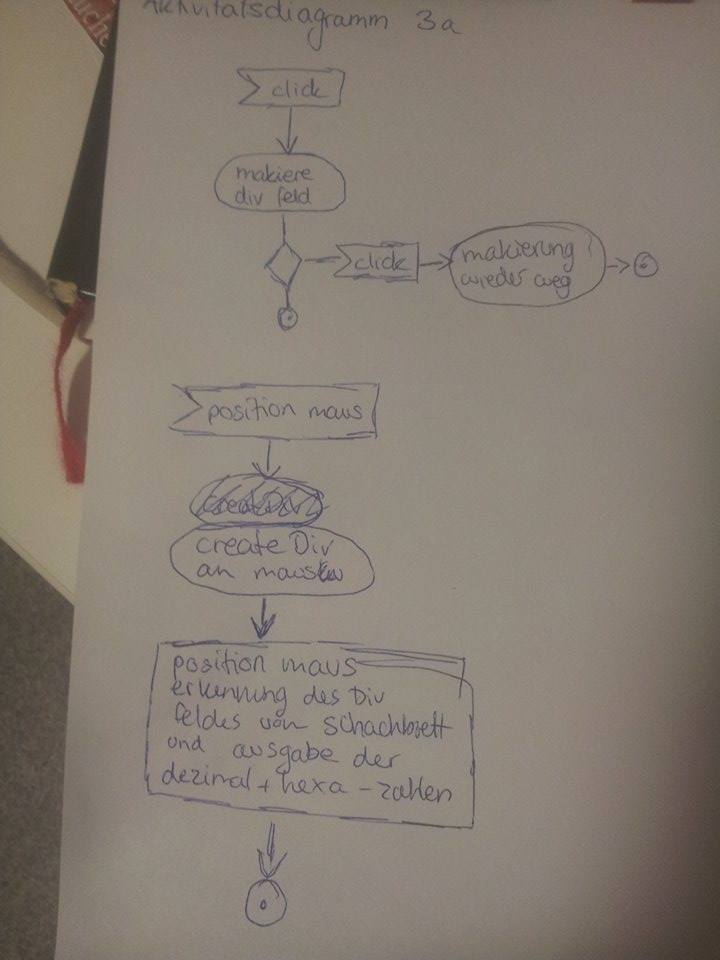 Aktivitätsdiagramm 3a
click
makiere
div feld
click
makierung
wieder weg
position maus
create Div
an maus
position maus
erkennung des Div
feldes von schachbrett
und ausgabe der
dezimal + hexa - zahlen